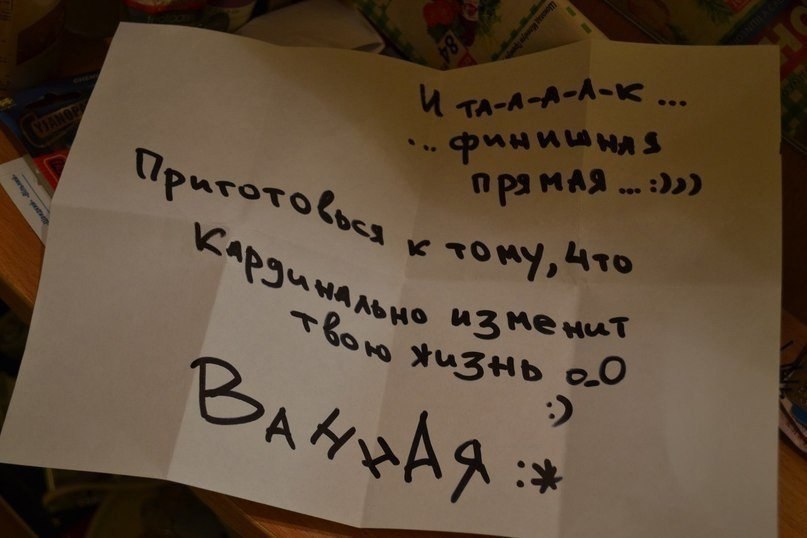 И ТА-А-А-А-К ...
... ФИНИШНАЯ
ПРЯМАЯ ... :)))
Приготовься к тому, что
кардинально изменит
твою жизнь o_O
:)
ВАННАЯ :*
84